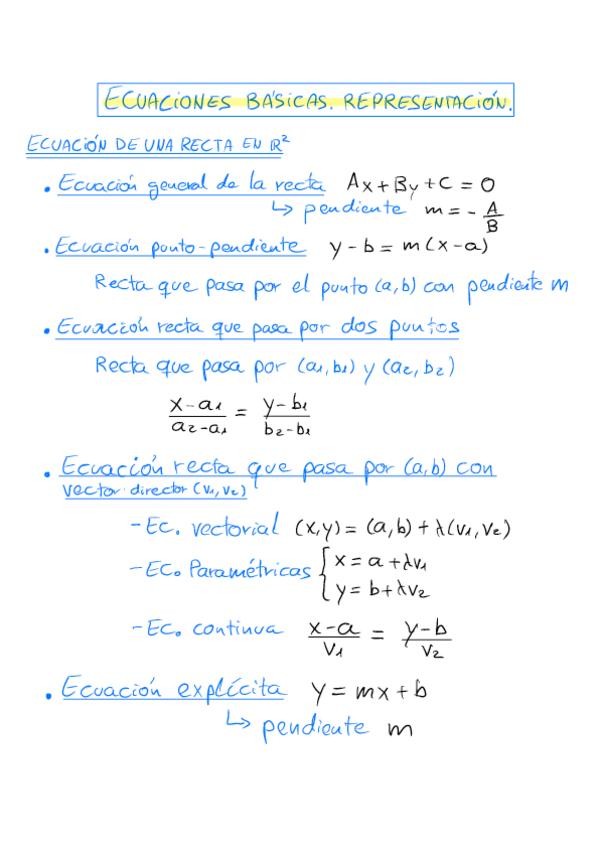 ECUACIONES BÁSICAS. REPRESENTACIÓN.
ECUACIÓN DE UNA RECTA EN ℝ²
• Ecuación general de la recta Ax + By + C = 0
↳ pendiente m = - A/B
• Ecuación punto-pendiente y - b = m(x-a)
Recta que pasa por el punto (a,b) con pendiente m
• Ecuación recta que pasa por dos puntos
Recta que pasa por (a₁,b₁) y (a₂,b₂)
(x-a₁)/(a₂-a₁) = (y-b₁)/(b₂-b₁)
• Ecuación recta que pasa por (a,b) con
vector director (v₁,v₂)
- Ec. vectorial (x,y) = (a,b) + λ(v₁,v₂)
- Ec. Paramétricas { x = a + λv₁
y = b + λv₂
- Ec. continua (x-a)/v₁ = (y-b)/v₂
• Ecuación explícita y = mx + b
↳ pendiente m